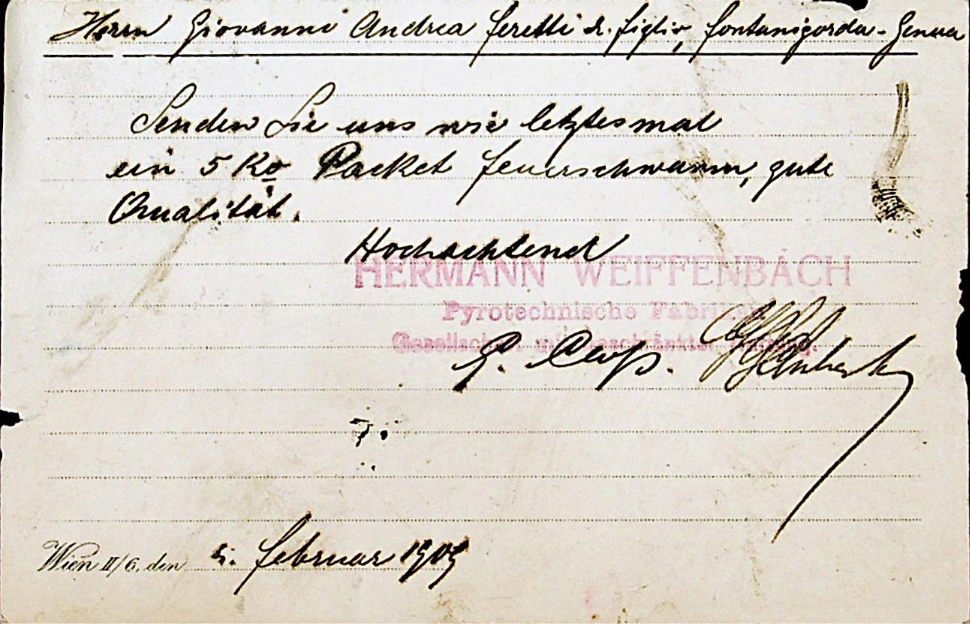 Herrn Giovanni Andrea Feretti & figlio, Fontanigorda - Genua
Senden Sie uns wie letztesmal
ein 5 Ko Packet Feuerschwamm, gute
Qualität.
Hochachtend
HERMANN WEIFFENBACH
Pyrotechnische Fabriken
Gesellschaft mit beschränkter Haftung.
Wien II/6, den 5. Februar 1909